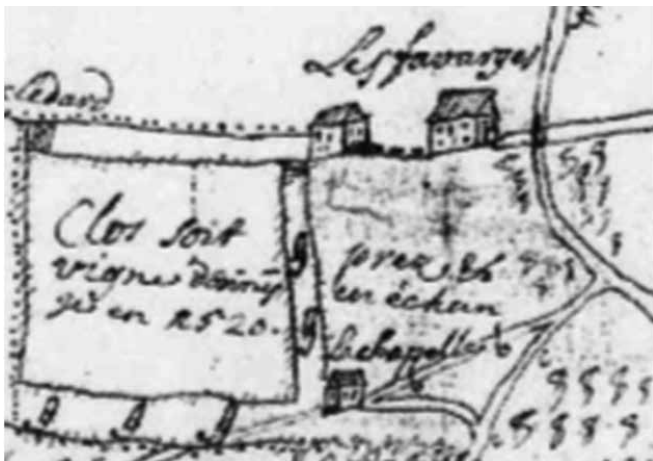 Les favarges
Clos soit
vigne
en 1520.
prez
en échan
la chapelle